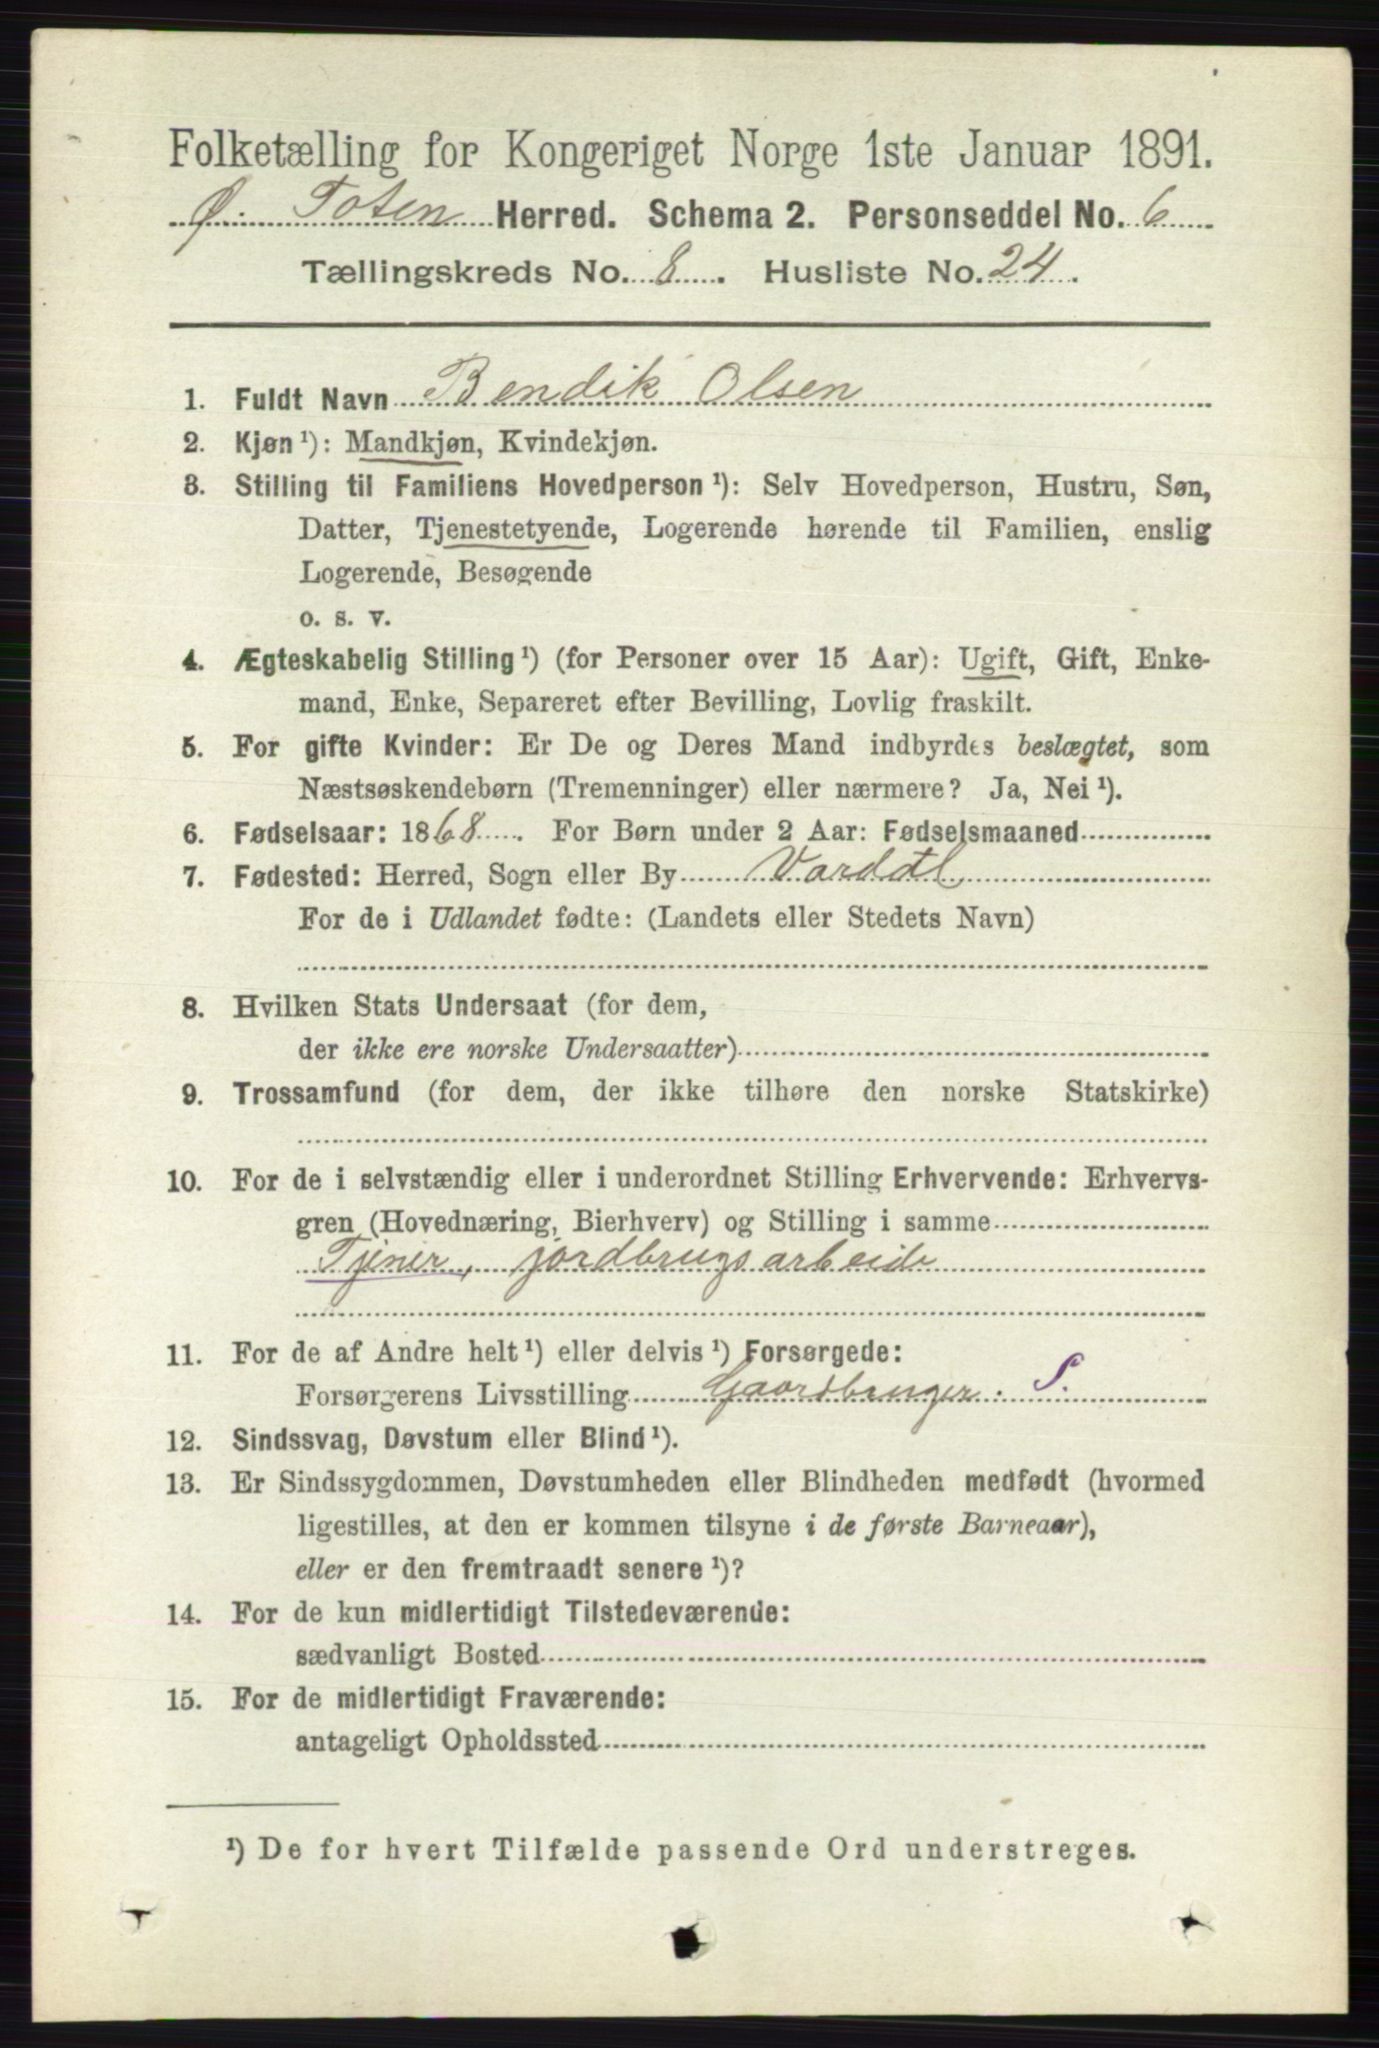 Folketælling for Kongeriget Norge 1ste Januar 1891.
Ø. Toten Herred. Schema 2. Personseddel No. 6
Tællingskreds No. 8. Husliste No. 24.
1. Fuldt Navn Bendik Olsen
2. Kjøn ¹): Mandkjøn, Kvindekjøn.
3. Stilling til Familiens Hovedperson ¹): Selv Hovedperson, Hustru, Søn,
Datter, Tjenestetyende, Logerende hørende til Familien, enslig
Logerende, Besøgende
o. s. v.
4. Ægteskabelig Stilling ¹) (for Personer over 15 Aar): Ugift, Gift, Enke-
mand, Enke, Separeret efter Bevilling, Lovlig fraskilt.
5. For gifte Kvinder: Er De og Deres Mand indbyrdes beslægtet, som
Næstsøskendebørn (Tremenninger) eller nærmere? Ja, Nei ¹).
6. Fødselsaar: 1868. For Børn under 2 Aar: Fødselsmaaned
7. Fødested: Herred, Sogn eller By Vardal
For de i Udlandet fødte: (Landets eller Stedets Navn)
8. Hvilken Stats Undersaat (for dem,
der ikke ere norske Undersaatter)
9. Trossamfund (for dem, der ikke tilhøre den norske Statskirke)
10. For de i selvstændig eller i underordnet Stilling Erhvervende: Erhvervs-
gren (Hovednæring, Bierhverv) og Stilling i samme
Tjener, jordbrugsarbeide
11. For de af Andre helt ¹) eller delvis ¹) Forsørgede:
Forsørgerens Livsstilling Gaardbruger. S.
12. Sindssvag, Døvstum eller Blind ¹).
13. Er Sindssygdommen, Døvstumheden eller Blindheden medfødt (hvormed
ligestilles, at den er kommen tilsyne i de første Barneaar),
eller er den fremtraadt senere ¹)?
14. For de kun midlertidigt Tilstedeværende:
sædvanligt Bosted
15. For de midlertidigt Fraværende:
antageligt Opholdssted
¹) De for hvert Tilfælde passende Ord understreges.